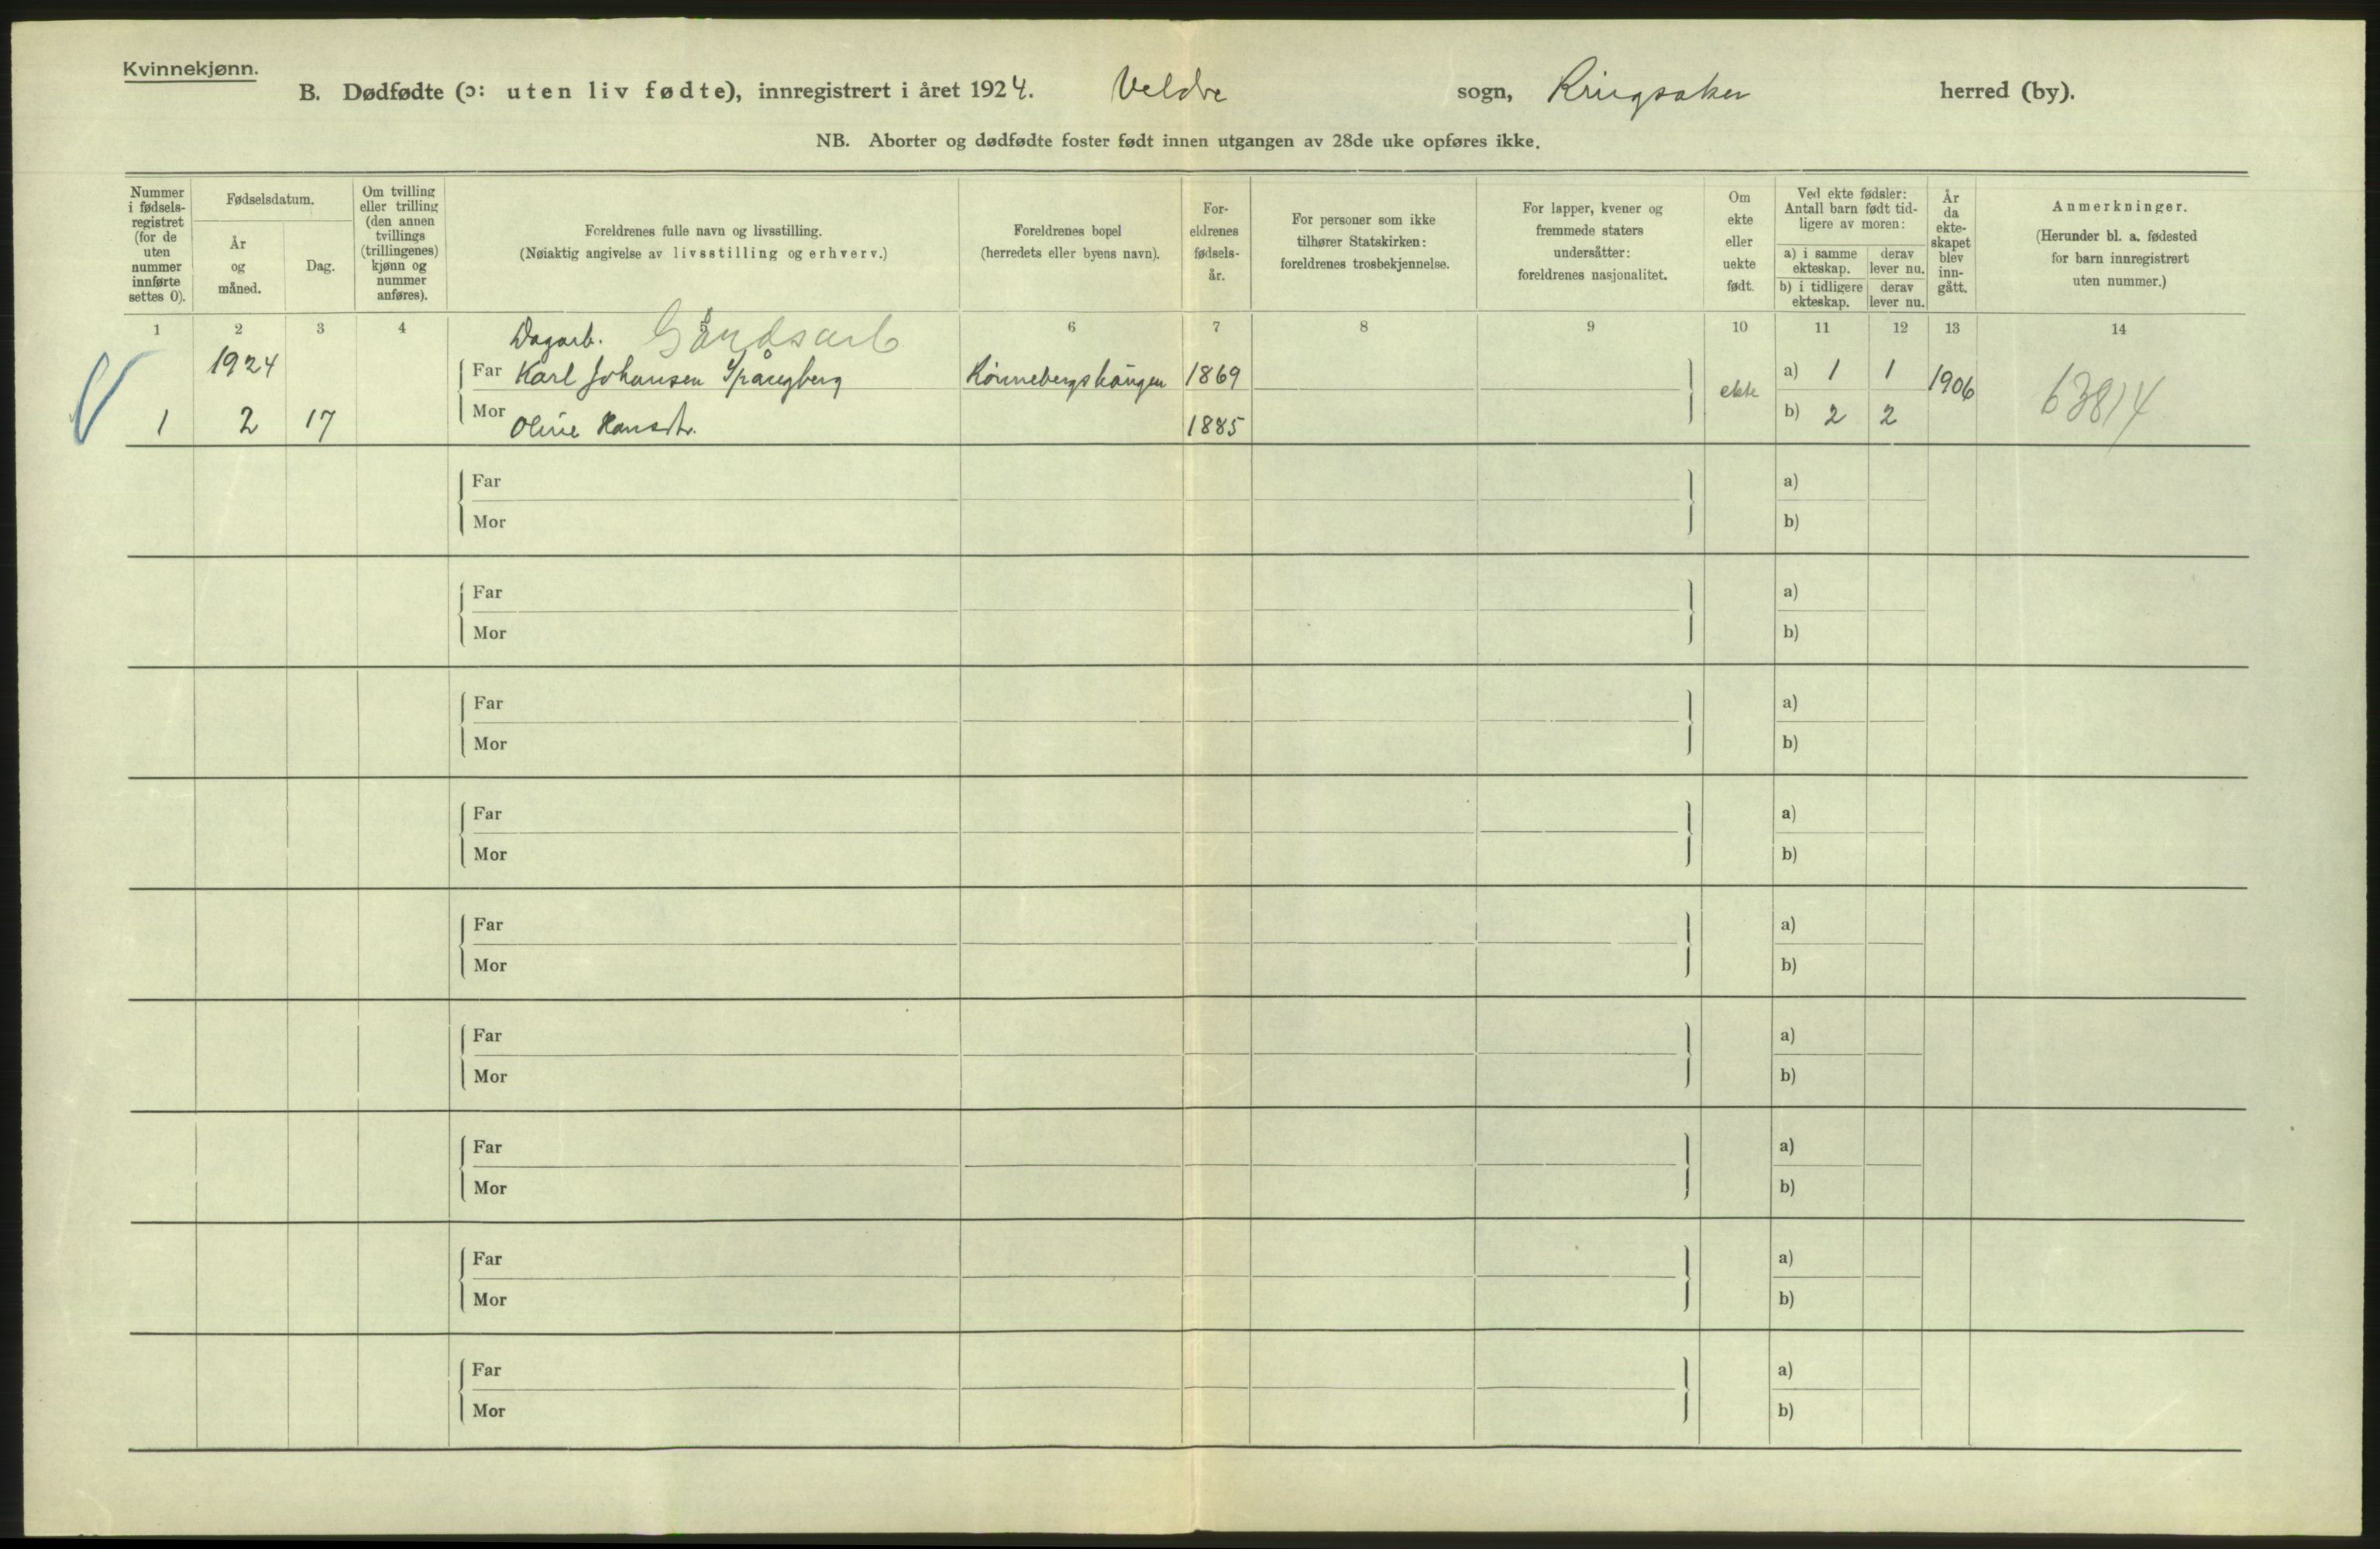 Kvinnekjønn.
B. Dødfødte (ɔ: uten liv fødte), innregistrert i året 1924. Veldre sogn, Ringsaker herred (by).
NB. Aborter og dødfødte foster født innen utgangen av 28de uke opføres ikke.
Nummer i fødsels-registret (for de uten nummer innførte settes 0).
Fødselsdatum.
År og måned.
Dag.
Om tvilling eller trilling (den annen tvillings (trillingenes) kjønn og nummer anføres).
Foreldrenes fulle navn og livsstilling.
(Nøiaktig angivelse av livsstilling og erhverv.)
Foreldrenes bopel
(herredets eller byens navn).
For-eldrenes fødsels-år.
For personer som ikke tilhører Statskirken: foreldrenes trosbekjennelse.
For lapper, kvener og fremmede staters undersåtter: foreldrenes nasjonalitet.
Om ekte eller uekte født.
Ved ekte fødsler: Antall barn født tid-ligere av moren:
a) i samme ekteskap.
derav lever nu.
b) i tidligere ekteskap.
derav lever nu.
År da ekte-skapet blev inn-gått.
Anmerkninger.
(Herunder bl. a. fødested for barn innregistrert uten nummer.)
1 2 3 4 6 7 8 9 10 11 12 13 14
Dagarb. Gårdsarb
1924 Far Karl Johansen Spångberg 1869 ekte a) 1 1 1906 63814
1 2 17 Mor Oline Hansdtr. 1885 b) 2 2
Far a)
Mor b)
Far a)
Mor b)
Far a)
Mor b)
Far a)
Mor b)
Far a)
Mor b)
Far a)
Mor b)
Far a)
Mor b)
Far a)
Mor b)
Far a)
Mor b)